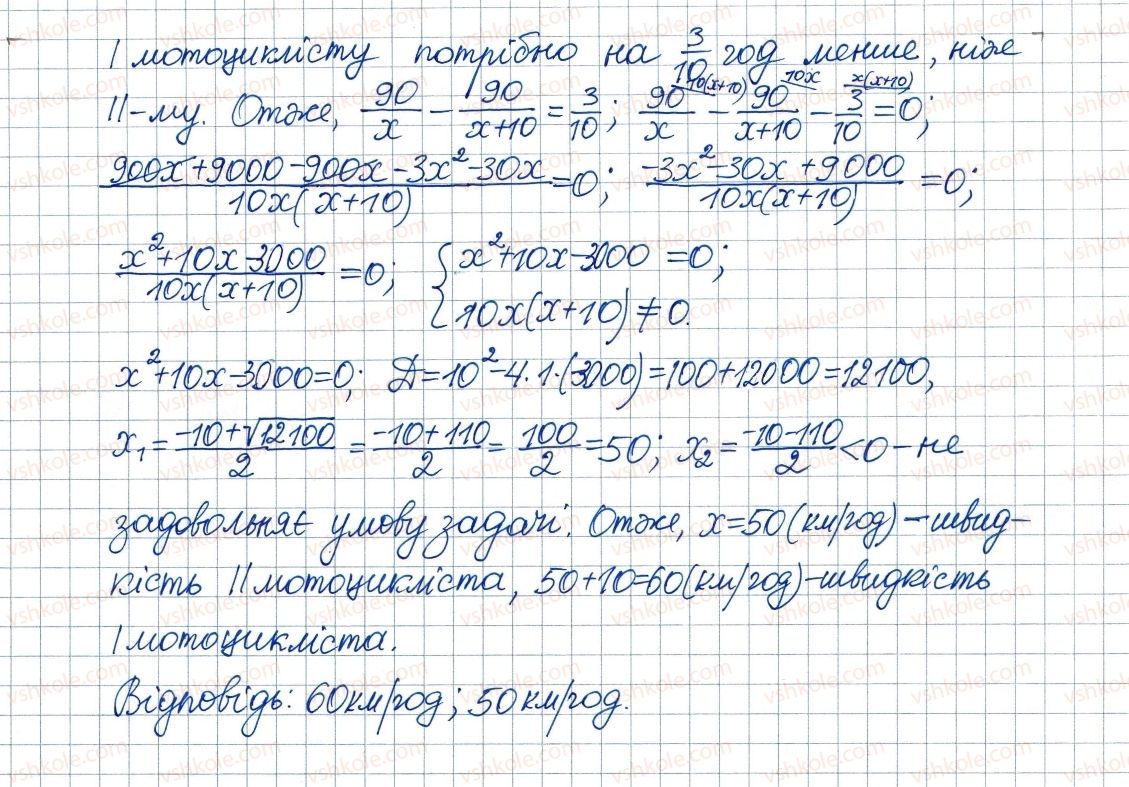 І мотоциклісту потрібно на 3/10 год менше, ніж
ІІ-му. Отже, 90/x − 90/(x+10) = 3/10; 90/x^(10(x+10)) − 90/(x+10)^(10x) − 3/10^(x(x+10)) = 0;
(900x+9000−900x−3x²−30x)/(10x(x+10)) = 0; (−3x²−30x+9000)/(10x(x+10)) = 0;
(x²+10x−3000)/(10x(x+10)) = 0; { x²+10x−3000 = 0;
10x(x+10) ≠ 0.
x²+10x−3000=0; Д=10²−4·1·(3000)=100+12000=12100,
x₁ = (−10+√12100)/2 = (−10+110)/2 = 100/2 = 50; x₂ = (−10−110)/2 < 0 – не
задовольняє умову задачі. Отже, x=50 (км/год) – швид-
кість ІІ мотоцикліста, 50+10=60 (км/год) – швидкість
І мотоцикліста.
Відповідь: 60 км/год; 50 км/год.
vshkole.com